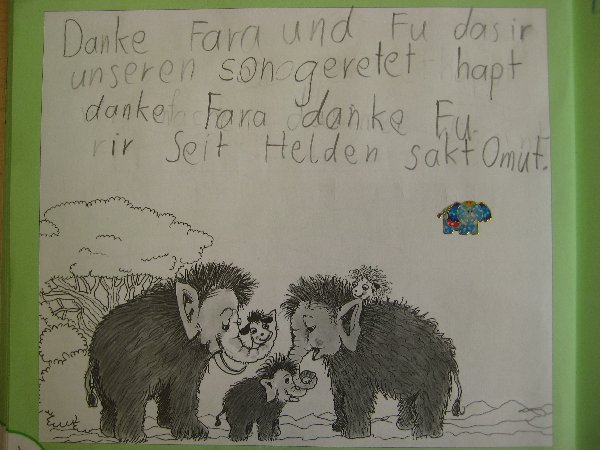 Danke Fara und Fu das ir
unseren son geretet hapt
danke Fara danke Fu.
rir Seit Helden sakt Omut.